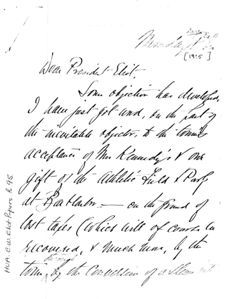 Monday
[1915]
Dear President Eliot,
Some objection has developed,
I have just got word, on the part of
the inevitable objectors, to the town's
acceptance of Mrs Kennedy's & our
gift of the Athletic Field & Park
at Bar Harbor — on the ground of
lost taxes (which will of course be
recovered, & much more, by the
town, by the conversion of
HUA: C.W. Eliot Papers b. 95